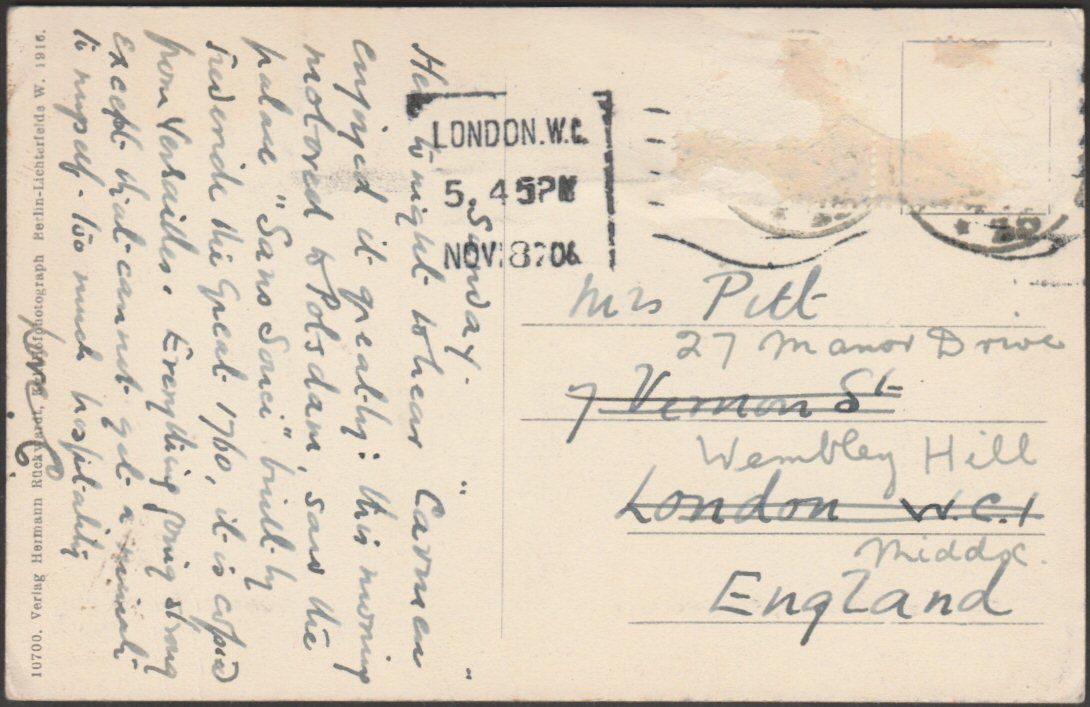 Sunday.
Here to-night to hear "Carmen"
enjoyed it greatly: this morning
motored to Potsdam, saw the
palace "Sans Souci" built by
Frederick the Great 1760, it is copied
from Versailles. Everything going strong
except that cannot get a minute
to myself - too much hospitality
10700. Verlag Hermann Rückwardt, Berlin-Lichterfelde W. 1916.
LONDON. W.C.
5. 45PM
NOV 8
Mrs Pitt
27 Manor Drive
7 Vernon St
Wembley Hill
London W.C.1
Middx.
England